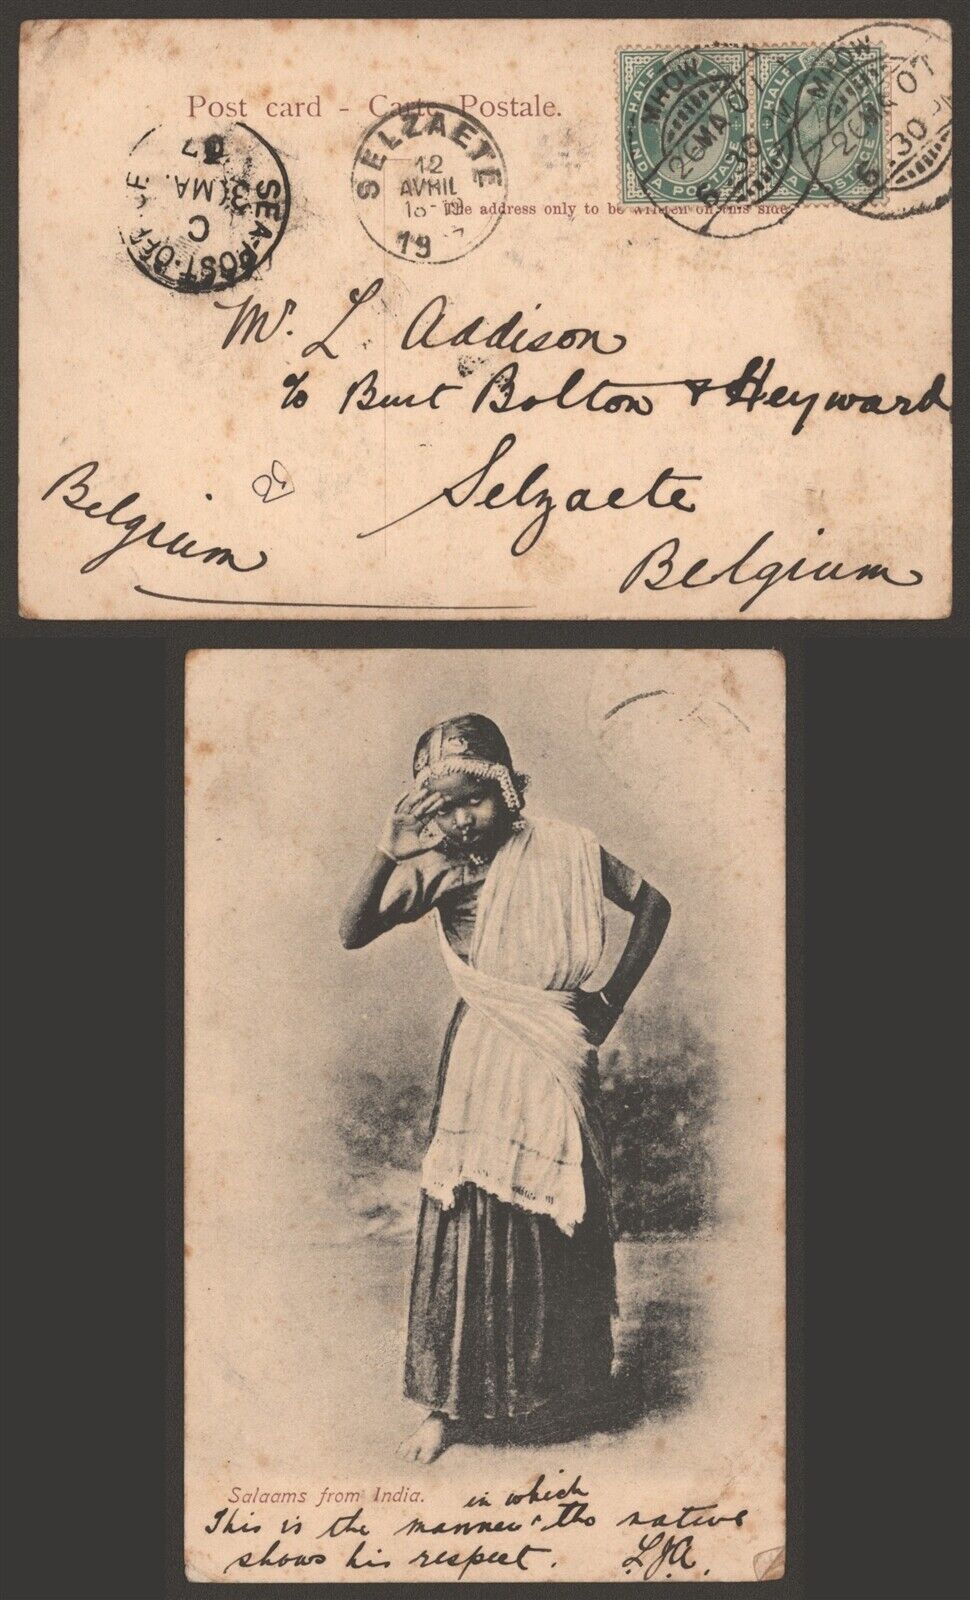 Post card - Carte Postale.
The address only to be written on this side.
HALF
INDIA POSTAGE
HALF
POSTAGE
MHOW
26 MA 07
6-30 PM
MHOW
26 MA 07
6-30 PM
SELZAETE
12
AVRIL
19
SEA POST OFFICE
C
31 MA.
07
Mr. L Addison
c/o Burt Bolton & Heyward
Selzaete
Belgium
Belgium
Salaams from India.
in which
This is the manner ^ the native
shows his respect. L.J.A.